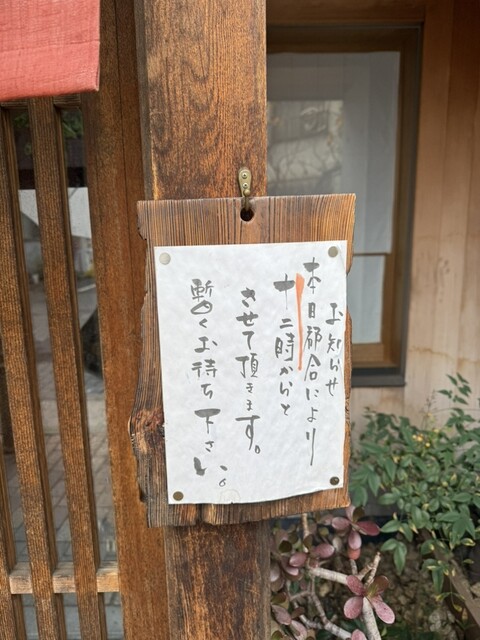 お知らせ
本日都合により
十二時からと
させて頂きます。
暫くお待ち下さい。